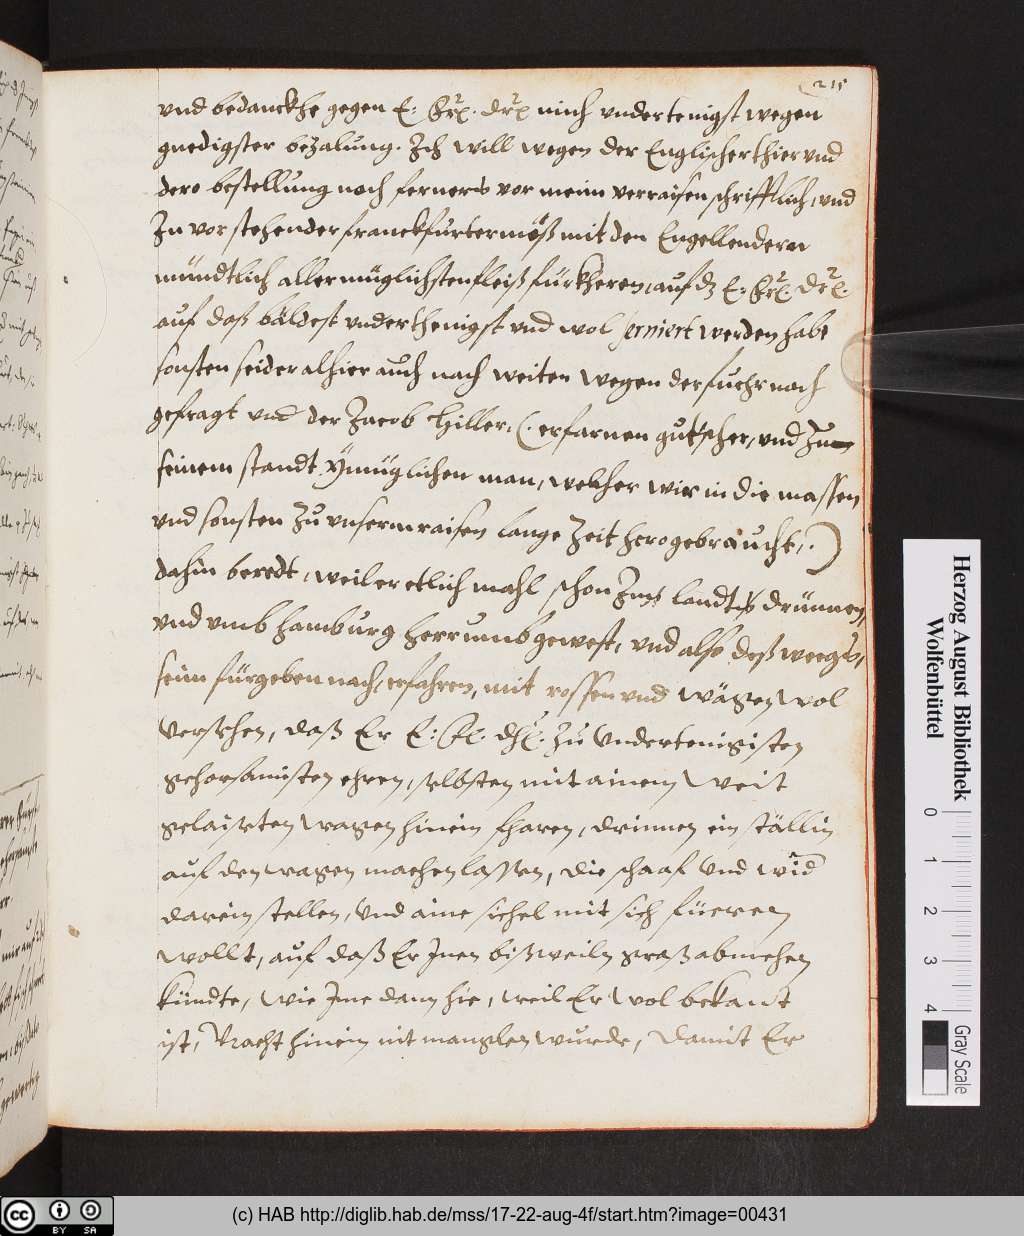 215
vnd bedanckhe gegen E: Frl. Drl mich vndertenigst wegen
gnedigster bezalung. Ich will wegen der Englischer thier vnd
dero bestellung noch ferners vor meim verraisen schrifftlich, vnd
In vorstehender franckfurter möß mit den Engellendern
mündtlich aller müglichsten fleiß fürkheren, auf dz E: Frl. Drl.
auf daß böldest vnderthenigst vnd wol serviert werden habe
sonsten seider alhier auch nach weiten wegen der fuehr nach
gefragt vnd der Jacob Hiller, (: erfarnen gutscher, vnd Zu
seinem standt müglichen man, welcher wir in die massen
vnd sonsten Zu vnserm raisen lange Zeit hero gebraucht, :)
dahin beredt, weil er etlich mahl schon Inß landt drünnen,
vnd vmb Hamburg herrumb gewest, vnd also deß weegs,
seim fürgeben nach, erfahren, mit rossen vnd wägen wol
versehen, daß Er E: Fl. Dhl. zu vndertenigisten
gehorsamisten ehren, selbsten mit ainem weit
gelaiterten wagen hinein fharen, drinnen ein ställin
auf den wagen machen lassen, die schaaf vnd wid
darein stellen, vnd aine sichel mit sich füeren
wollt, auf daß Er Inen bißweiln graß abmehen
kündte, wie Ime dann hie, weil Er wol bekant
ist, Nacht hinein nit manglen wurde, damit Er
Herzog August Bibliothek
Wolfenbüttel
0 1 2 3 4
Gray Scale
cc BY SA
(c) HAB http://diglib.hab.de/mss/17-22-aug-4f/start.htm?image=00431